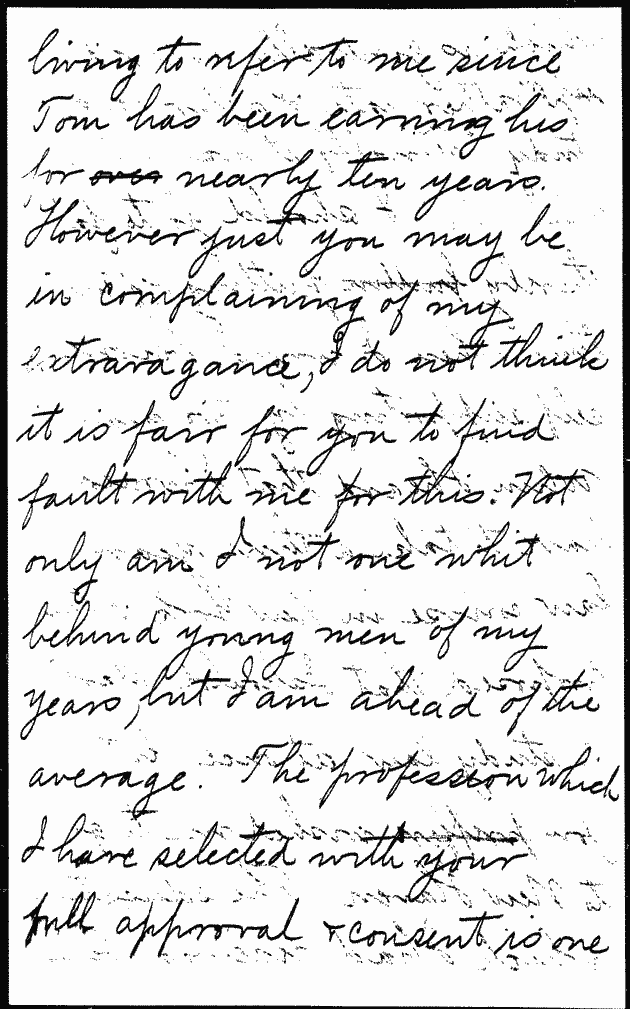 living to refer to me since
Tom has been earning his
for over nearly ten years.
However just you may be
in complaining of my
extravagance, I do not think
it is fair for you to find
fault with me for this. Not
only am I not one whit
behind young men of my
years, but I am ahead of the
average. The profession which
I have selected with your
full approval & consent is one